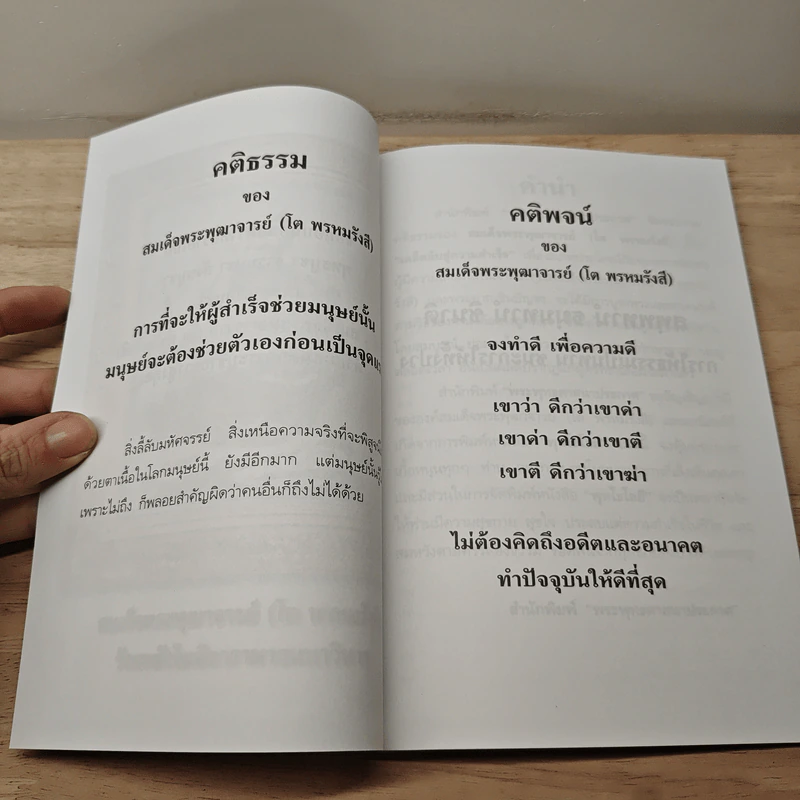 คติธรรม
ของ
สมเด็จพระพุฒาจารย์ (โต พรหมรังสี)
การที่จะให้ผู้สำเร็จช่วยมนุษย์นั้น
มนุษย์จะต้องช่วยตัวเองก่อนเป็น
สิ่งลี้ลับมหัศจรรย์ สิ่งเหนือความจริงที่จะ
ด้วยตาเนื้อในโลกมนุษย์นี้ ยังมีอีกมาก แต่มนุษย์นั้น
เพราะไม่ถึง ก็พลอยสำคัญผิดว่าคนอื่นก็ถึงไม่ได้ด้วย
คติพจน์
ของ
สมเด็จพระพุฒาจารย์ (โต พรหมรังสี)
จงทำดี เพื่อความดี
เขาว่า ดีกว่าเขาด่า
เขาด่า ดีกว่าเขาตี
เขาตี ดีกว่าเขาฆ่า
ไม่ต้องคิดถึงอดีตและอนาคต
ทำปัจจุบันให้ดีที่สุด